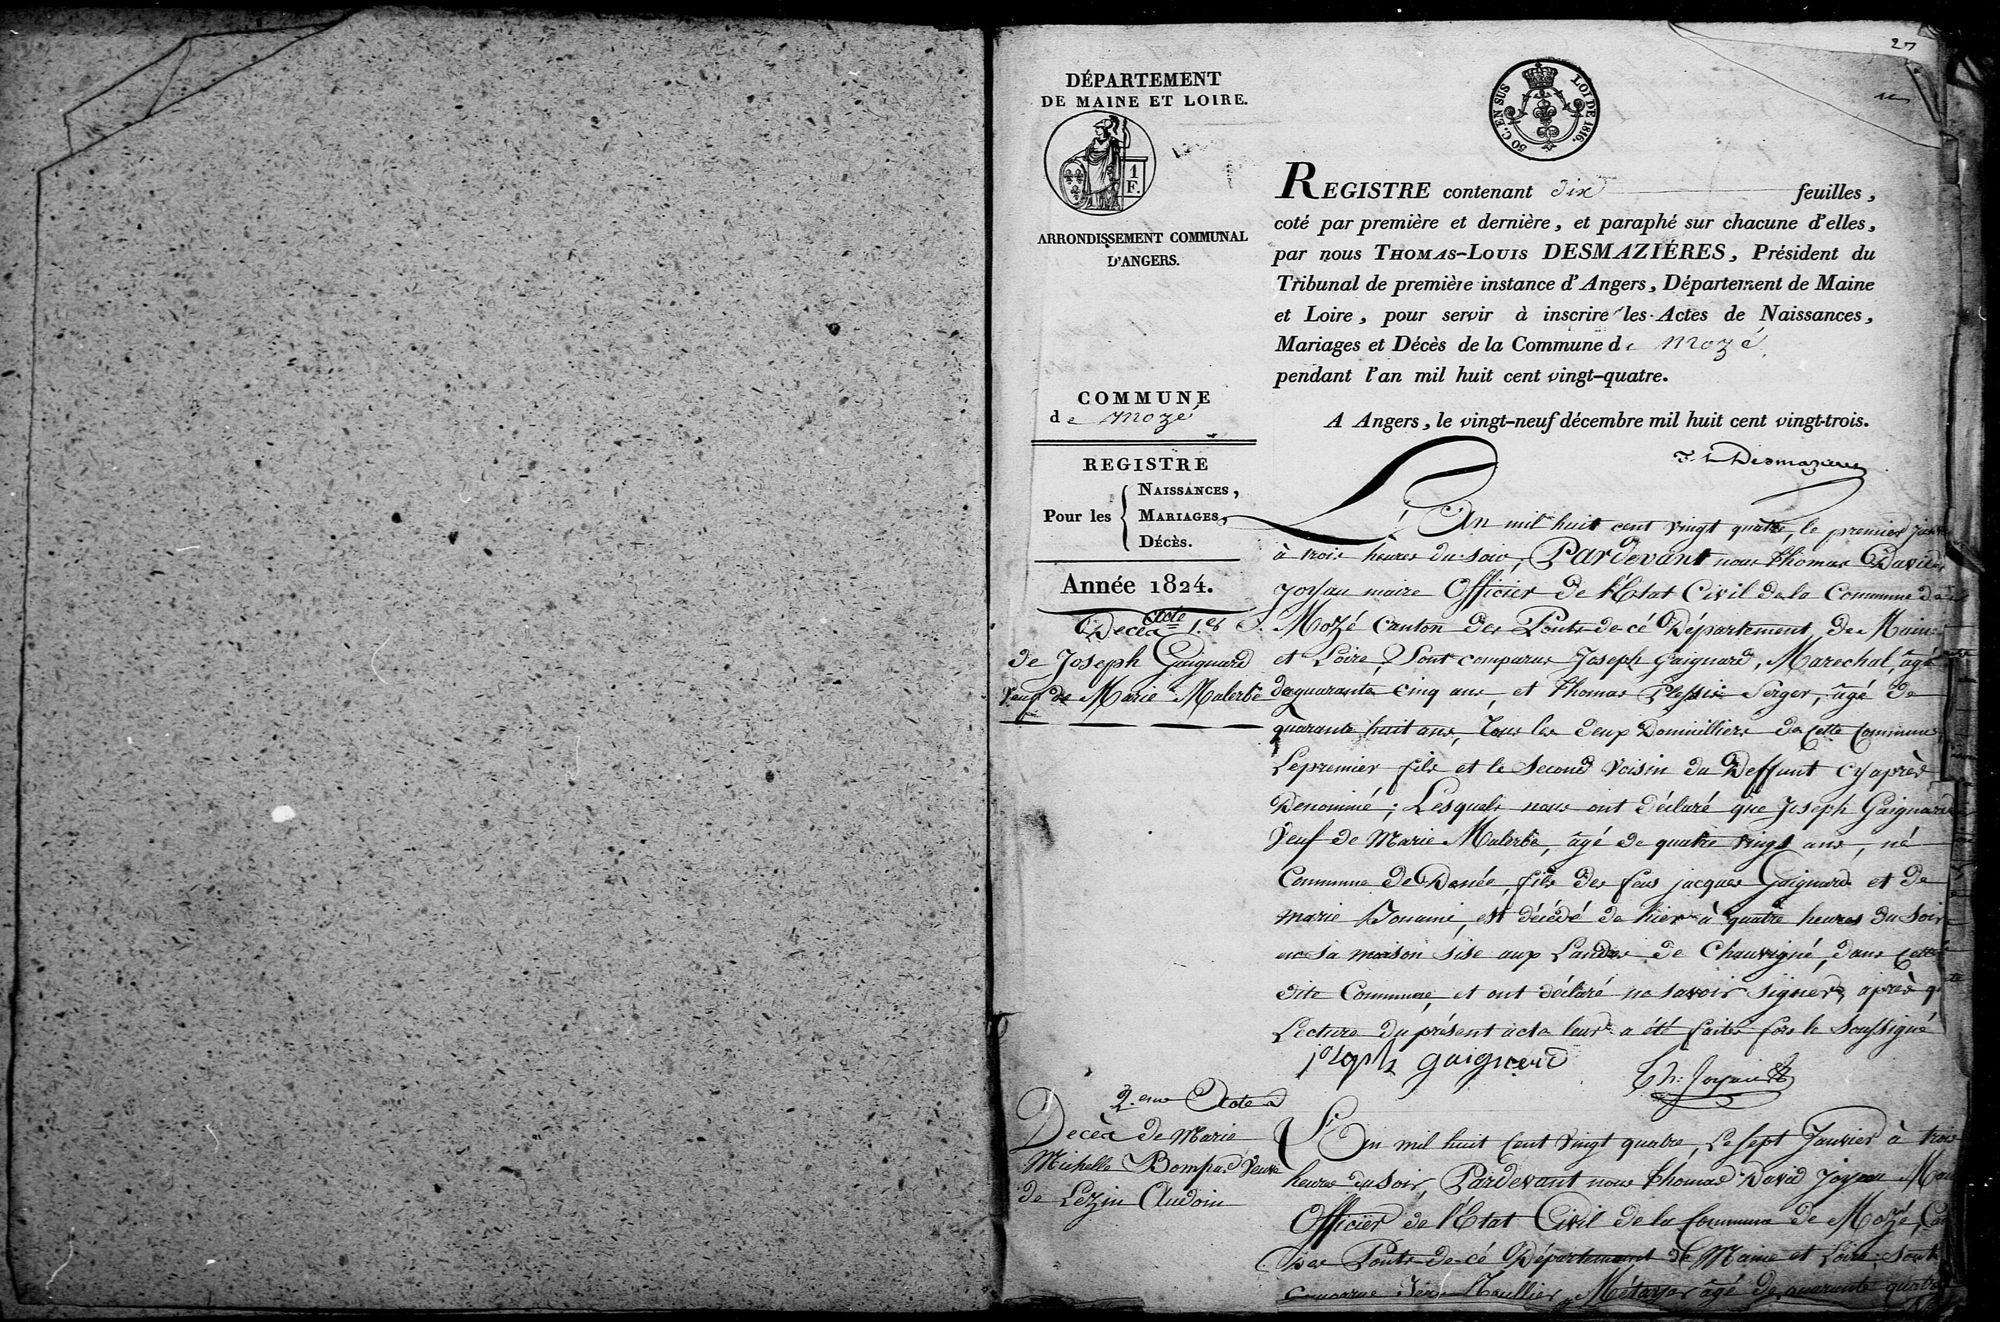 27
DÉPARTEMENT
DE MAINE ET LOIRE.
1
F.
50 C. EN SUS
LOI DE 1816.
ARRONDISSEMENT COMMUNAL
D'ANGERS.
REGISTRE contenant dix feuilles,
coté par première et dernière, et paraphé sur chacune d'elles,
par nous THOMAS-LOUIS DESMAZIÉRES, Président du
Tribunal de première instance d'Angers, Département de Maine
et Loire, pour servir à inscrire les Actes de Naissances,
Mariages et Décès de la Commune de Mozé
pendant l'an mil huit cent vingt-quatre.
A Angers, le vingt-neuf décembre mil huit cent vingt-trois.
T. L Desmazieres
COMMUNE
de Mozé
REGISTRE
Pour les
NAISSANCES,
MARIAGES,
DÉCÈS.
Année 1824.
Acte 1.er
Décès
de Joseph Gaignard
Veuf de Marie Malerbe
L'An mil huit cent vingt quatre, le premier
à trois heures du soir, Pardevant nous Thomas David
Joyau maire Officier de l'Etat Civil de la Commune de
Mozé Canton des Ponts-de-cé Département de Maine
et Loire, Sont comparus Joseph Gaignard, Marechal, agé
de quarante cinq ans, et Thomas Plessis Serger, agé de
quarante huit ans, tous les deux Domicilliers de cette Commune
Le premier fils et le Second Voisin du Deffunt cy après
Denommé; Lesquels nous ont déclaré que Joseph Gaignard
Veuf de Marie Malerbe, agé de quatre vingt ans, né
Commune de Denée, fils des feus jacques Gaignard et de
marie, est décédé de hier à quatre heures du Soir
en sa maison sise aux Landes de Chauvigné, dans cette
dite Commune, et ont déclaré ne savoir signer, après q
Lecture du présent acte leur a été faite, fors le Soussigné
joseph gaignard
Th: Joyau
2.eme Acte
Décès de Marie
Michelle Bompas Veuve
de Lezin Audoin
L'An mil huit Cent Vingt quatre, Le Sept Janvier à trois
heures du soir, Pardevant nous Thomas David Joyau Mai
Officier de l'Etat Civil de la Commune de Mozé, Ca
Des Ponts-de-cé Département de Maine et Loire, Sont
Comparus Métayer agé de quarante quatre